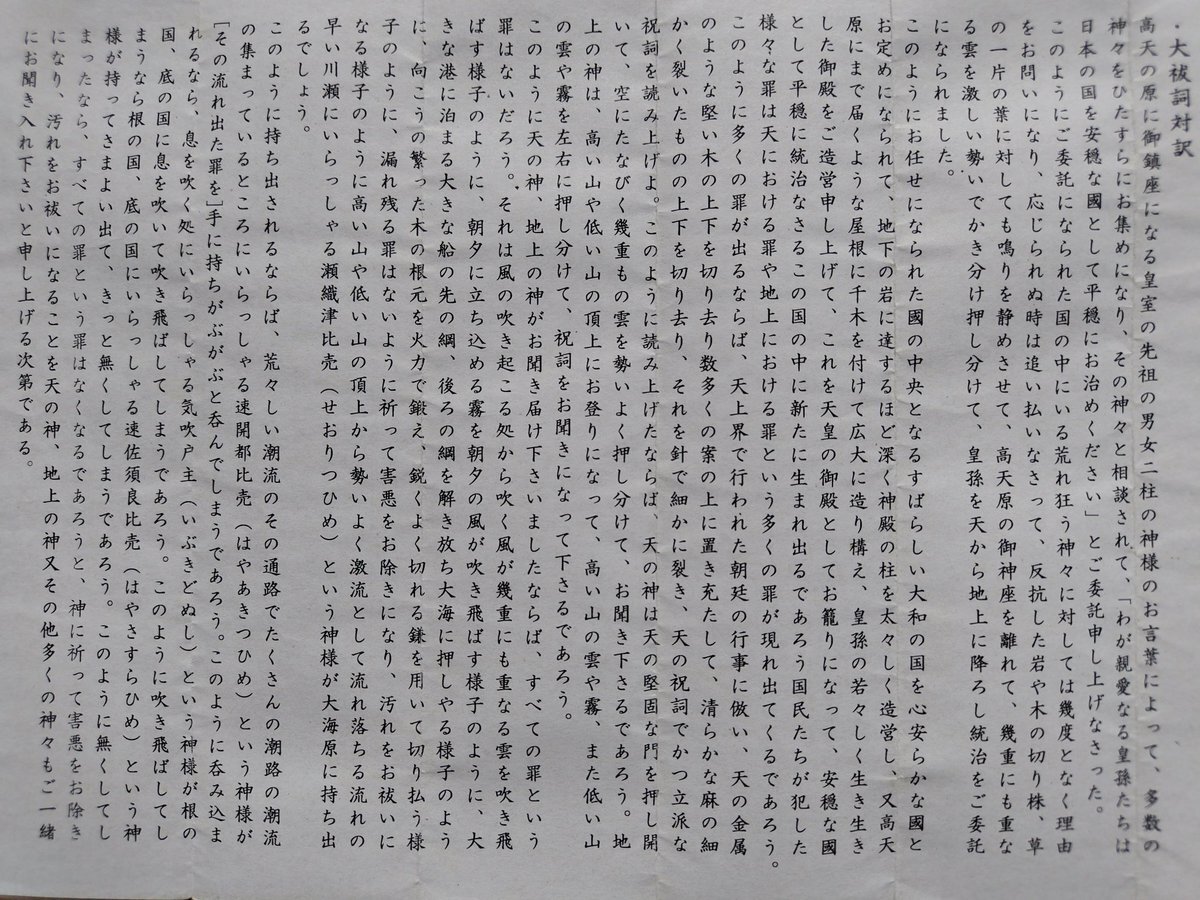 ・大祓詞対訳
高天の原に御鎮座になる皇室の先祖の男女二柱の神様のお言葉によって、多数の
神々をひたすらにお集めになり、その神々と相談されて、「わが親愛なる皇孫たちは
日本の国を安穏な國として平穏にお治めください」とご委託申し上げなさった。
このようにご委託になられた國の中にいる荒れ狂う神々に対しては幾度となく理由
をお問いになり、応じられぬ時は追い払いなさって、反抗した岩や木の切り株、草
の一片の葉に対しても鳴りを静めさせて、高天原の御神座を離れて、幾重にも重な
る雲を激しい勢いでかき分け押し分けて、皇孫を天から地上に降ろし統治をご委託
になられました。
このようにお任せになられた國の中央となるすばらしい大和の国を心安らかな國と
お定めになられて、地下の岩に達するほど深く神殿の柱を太々しく造営し、又高天
原にまで届くような屋根に千木を付けて広大に造り構え、皇孫の若々しく生き生き
した御殿をご造営申し上げて、これを天皇の御殿としてお籠りになって、安穏な國
として平穏に統治なさるこの国の中に新たに生まれ出るであろう国民たちが犯した
様々な罪は天における罪や地上における罪という多くの罪が現れ出てくるであろう。
このように多くの罪が出るならば、天上界で行われた朝廷の行事に倣い、天の金属
のような堅い木の上下を切り去り数多くの案の上に置き充たして、清らかな麻の細
かく裂いたものの上下を切り去り、それを針で細かに裂き、天の祝詞でかつ立派な
祝詞を読み上げよ。このように読み上げたならば、天の神は天の堅固な門を押し開
いて、空にたなびく幾重もの雲を勢いよく押し分けて、お聞き下さるであろう。地
上の神は、高い山や低い山の頂上にお登りになって、高い山の雲や霧、また低い山
の雲や霧を左右に押し分けて、祝詞をお聞きになって下さるであろう。
このように天の神、地上の神がお聞き届け下さいましたならば、すべての罪という
罪はないだろう。それは風の吹き起こる処から吹く風が幾重にも重なる雲を吹き飛
ばす様子のように、朝夕に立ち込める霧を朝夕の風が吹き飛ばす様子のように、大
きな港に泊まる大きな船の先の綱、後ろの綱を解き放ち大海に押しやる様子のよう
に、向こうの繁った木の根元を火力で鍛え、鋭くよく切れる鎌を用いて切り払う様
子のように、漏れ残る罪はないように祈って害悪をお除きになり、汚れをお祓いに
なる様子のように高い山や低い山の頂上から勢いよく激流として流れ落ちる流れの
早い川瀬にいらっしゃる瀬織津比売（せおりつひめ）という神様が大海原に持ち出
るでしょう。
このように持ち出されるならば、荒々しい潮流のその通路でたくさんの潮路の潮流
の集まっているところにいらっしゃる速開都比売（はやあきつひめ）という神様が
［その流れ出た罪を］手に持ちがぶがぶと呑んでしまうであろう。このように呑み込ま
れるなら、息を吹く処にいらっしゃる気吹戸主（いぶきどぬし）という神様が根の
国、底の国に息を吹いて吹き飛ばしてしまうであろう。このように吹き飛ばしてし
まうなら根の国、底の国にいらっしゃる速佐須良比売（はやさすらひめ）という神
様が持ってさまよい出て、きっと無くしてしまうであろう。このように無くしてし
まったなら、すべての罪という罪はなくなるであろうと、神に祈って害悪をお除き
になり、汚れをお祓いになることを天の神、地上の神又その他多くの神々もご一緒
にお聞き入れ下さいと申し上げる次第である。